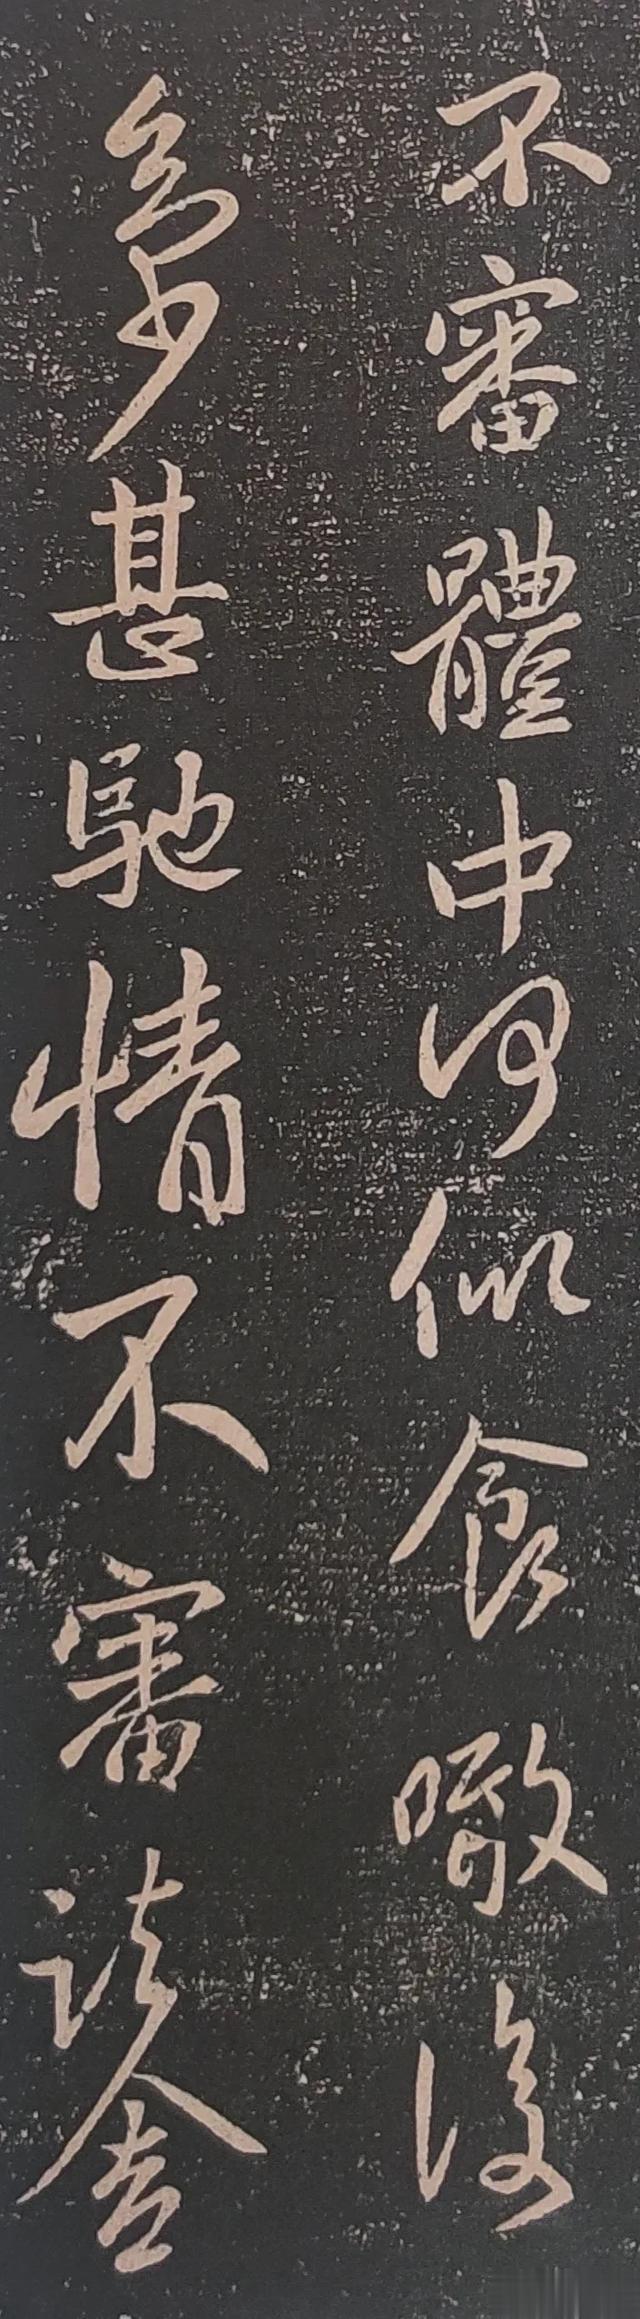 不審體中何似食噉復
多少甚馳情不審諸舍